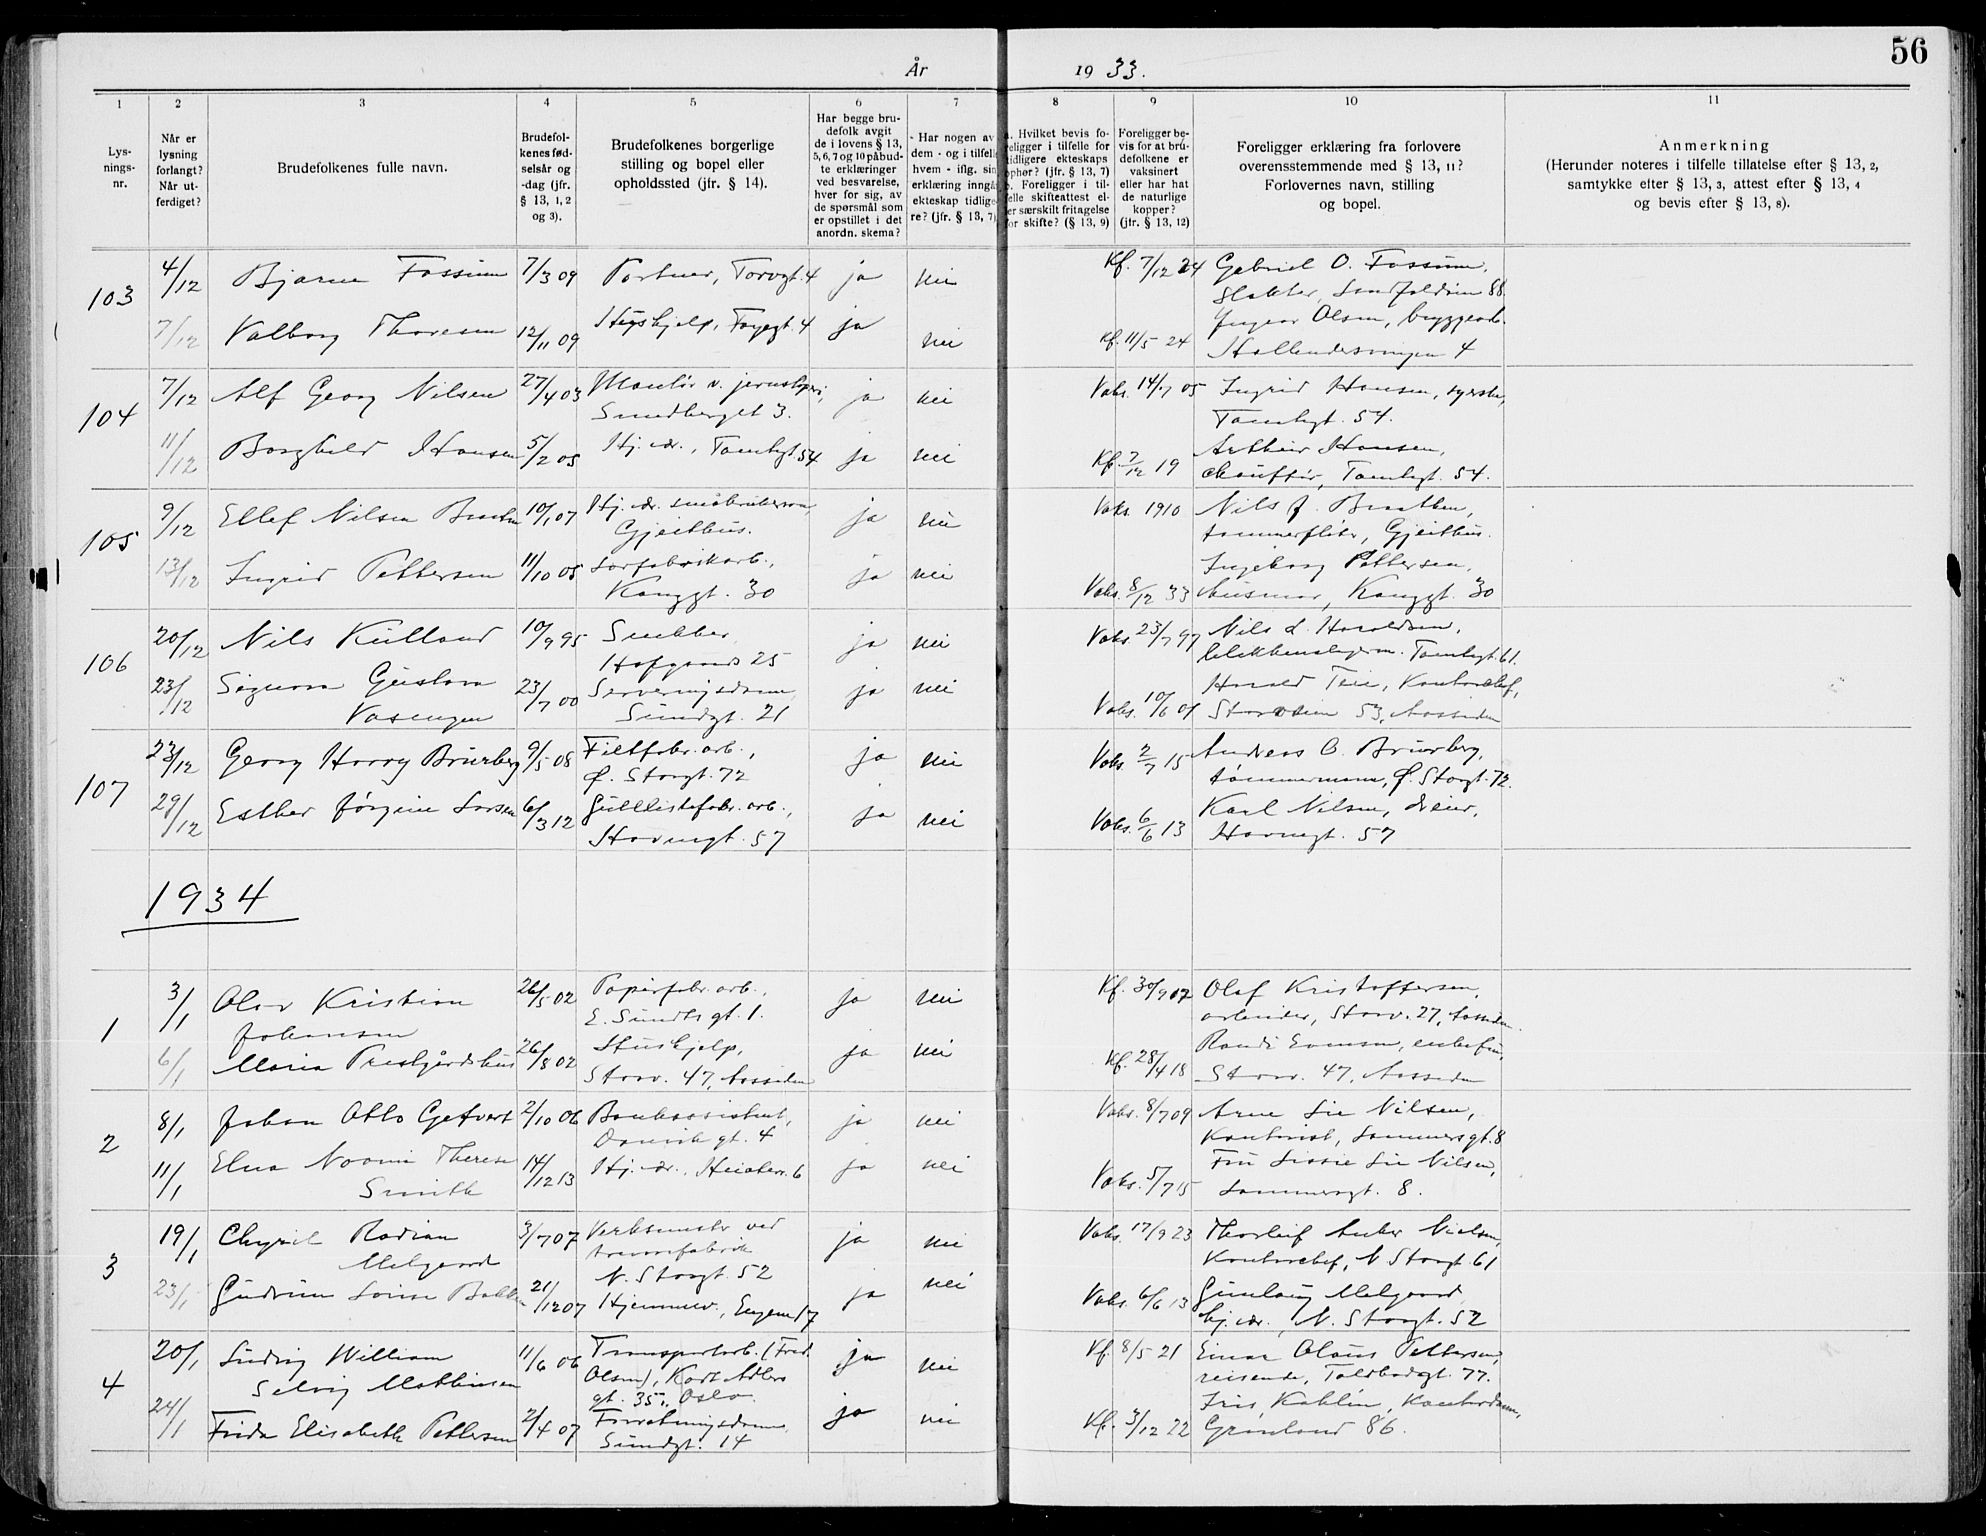 56
År 1933.
1 2 3 4 5 6 7 8 9 10 11
Lysningsnr.
Når er lysning forlangt? Når utferdiget?
Brudefolkenes fulle navn.
Brudefolkenes fødselsår og -dag (jfr. § 13, 1, 2 og 3).
Brudefolkenes borgerlige stilling og bopel eller opholdssted (jfr. § 14).
Har begge brudefolk avgit de i lovens § 13, 5, 6, 7 og 10 påbudte erklæringer ved besvarelse, hver for sig, av de spørsmål som er opstillet i det anordn. skema?
Har nogen av dem - og i tilfelle hvem - iflg. sin erklæring inngå ekteskap tidligere? (jfr. § 13, 7)
a. Hvilket bevis foreligger i tilfelle for tidligere ekteskaps ophør? (jfr. § 13, 7) b. Foreligger i tilfelle skifteattest eller særskilt fritagelse for skifte? (§ 13, 9)
Foreligger bevis for at brudefolkene er vaksinert eller har hat de naturlige kopper? (jfr. § 13, 12)
Foreligger erklæring fra forlovere overensstemmende med § 13, 11? Forlovernes navn, stilling og bopel.
Anmerkning (Herunder noteres i tilfelle tillatelse efter § 13, 2, samtykke efter § 13, 3, attest efter § 13, 4 og bevis efter § 13, 8).
103 4/12 Bjarne Fossum 7/3 09 Portner, Torvgt. 4 ja nei Kf. 7/12 24 Gabriel O. Fossum,
Slakter, 88.
7/12 Valborg Thoresen 12/11 09 Hushjelp, Torvgt. 4 ja nei Kf. 11/5 24 Olsen, byggearb.
Hollendersvingen 4
104 7/12 Alf Georg Nilsen 27/4 03 Montør v. jernstøperi, ja nei Vaks. 14/7 05 Ingrid Hansen, syerske,
Sundberget 3. Tomtegt. 54.
11/12 Borghild Hansen 5/2 05 Hj. vær., Tomtegt. 54 ja nei Kf. 7/12 19 Arthur Hansen,
chauffør, Tomtegt. 54.
105 9/12 Ellef Nilsen Braaten 10/1 07 Hj. vær. småbrukersøn, ja nei Vaks. 1910 Nils J. Braathen,
Gjeithus. tømmerfløter, Gjeithus.
13/12 Ingrid Pettersen 11/10 05 ja nei Ingeborg Pettersen,
Konggt. 30 Vaks. 8/12 33 husmor, Konggt. 30
106 20/12 Nils Kulland 10/9 95 Snekker ja nei Vaks. 23/7 97 Nils L. Haraldsen,
Hofgaards 25 blikkenslagerm. Tomtegt. 61.
23/12 Signora Gustava 23/7 00 Serveringsdame, ja nei Harald Teie, Kontorchef,
Vasengen Sundgt. 21 Vaks. 10/6 01 Storveien 53, Aassiden
107 23/12 Georg Harry Bruserberg 9/5 08 Filtfabr. arb., ja nei Vaks. 2/7 15 Andreas O.
Ø. Storgt. 72 tømmermann, Ø. Storgt. 72.
29/12 Esther Jørgine Larsen 6/3 12 Gullistefabr. arb., ja nei Vaks. 6/6 13 Karl Nilsen, dreier,
Havnegt. 57 Havnegt. 57
1934
1 3/1 Olav Kristian 26/5 02 Papirfabr. arb., ja nei Kf. 30/9 17 Olaf Kristoffersen,
Johansen E. Sundts gt. 1. arbeider, Storv. 27, Aassiden.
6/1 Maria Prestgårdshus 26/8 02 Hushjelp, ja nei Kf. 28/4 18 Randi Evensen, enkefru,
Storv. 47, Aassiden Storv. 47, Aassiden
2 8/1 Johan Otto Gefvert 2/10 06 Bankassistent, ja nei Vaks. 8/7 09 Arne Lie Nilsen,
Danvikgt. 4 Kontorist, Sommersgt. 8
11/1 Elna Noomi Therese 14/12 13 Hj. vær., 6 ja nei Fru Lissie Lie Nilsen,
Smith Vaks. 5/7 15 Sommersgt. 8.
3 19/1 Chyril Radian 3/7 07 Verksmester ved ja nei Vaks. 17/9 23 Thorleif Anker Nielsen,
Melgaard N. Storgt. 52 Kontorchef, N Storgt 61
23/1 Gudrun Lovise Bakken 21/12 07 Hjemmev., Engene 17 ja nei Vaks. 6/6 13 Gunlaug Melgaard,
hj. vær., N. Storgt. 52
4 20/1 Ludvig William 11/6 06 Transportarb. (Fred. ja nei Kf. 8/5 21 Einar Olaus Pettersen,
Selvig Mathiesen Olsen), Kort Adlers reisende, Toldbodgt. 77.
gt. 35, Oslo. Iris Kahlin, Kontordame,
24/1 Frida Elisabeth Pettersen 2/4 07 Forretningsdame, ja nei Kf. 3/12 22 Grønland 86.
Sundgt. 14